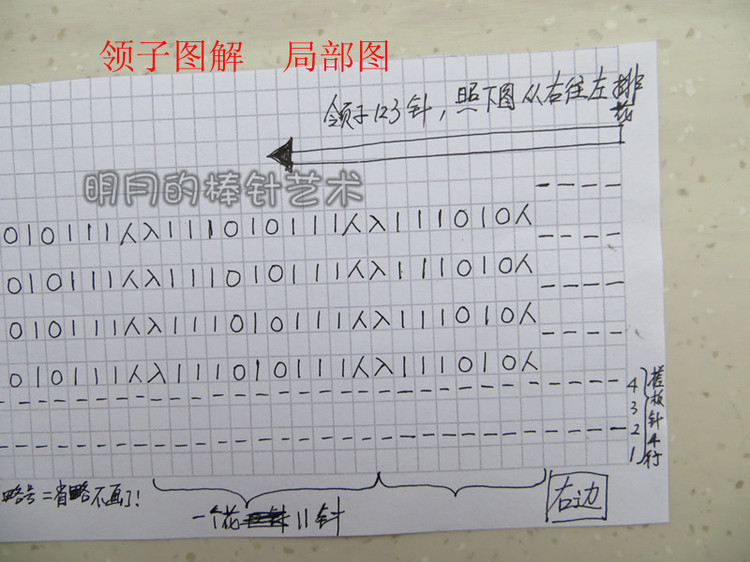 领子图解 局部图
领子123针,照下图从右往左排花
明月的棒针艺术
— — — —
010111人入111010111人入111010人
— — — —
010111人入111010111人入111010人
— — — —
010111人入111010111人入111010人
— — — —
010111人入111010111人入111010人
4
3
2
1
搓板针4行
略号=省略不画了!
一个花 11针
右边